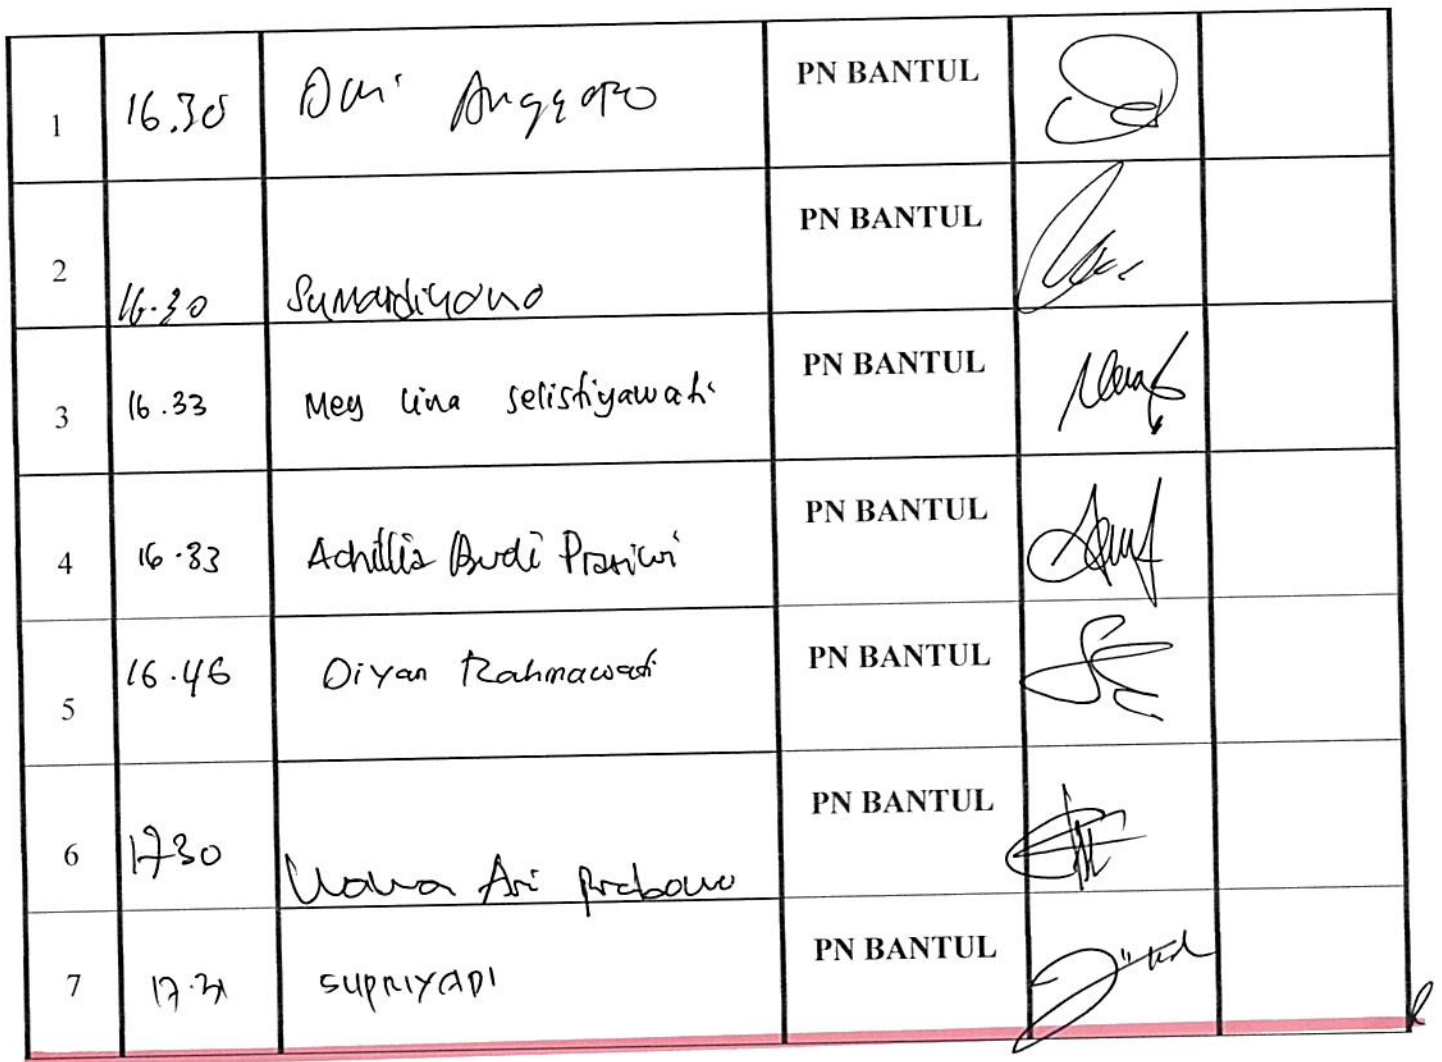 1 16.30 Dwi Anggoro PN BANTUL
2 16.30 Sumardiyono PN BANTUL
3 16.33 Mey Lina Selistiyawati PN BANTUL
4 16.33 Achillia Budi Prasiwi PN BANTUL
5 16.46 Diyan Rahmawati PN BANTUL
6 1730 Ari Prabowo PN BANTUL
7 17.31 SUPRIYADI PN BANTUL